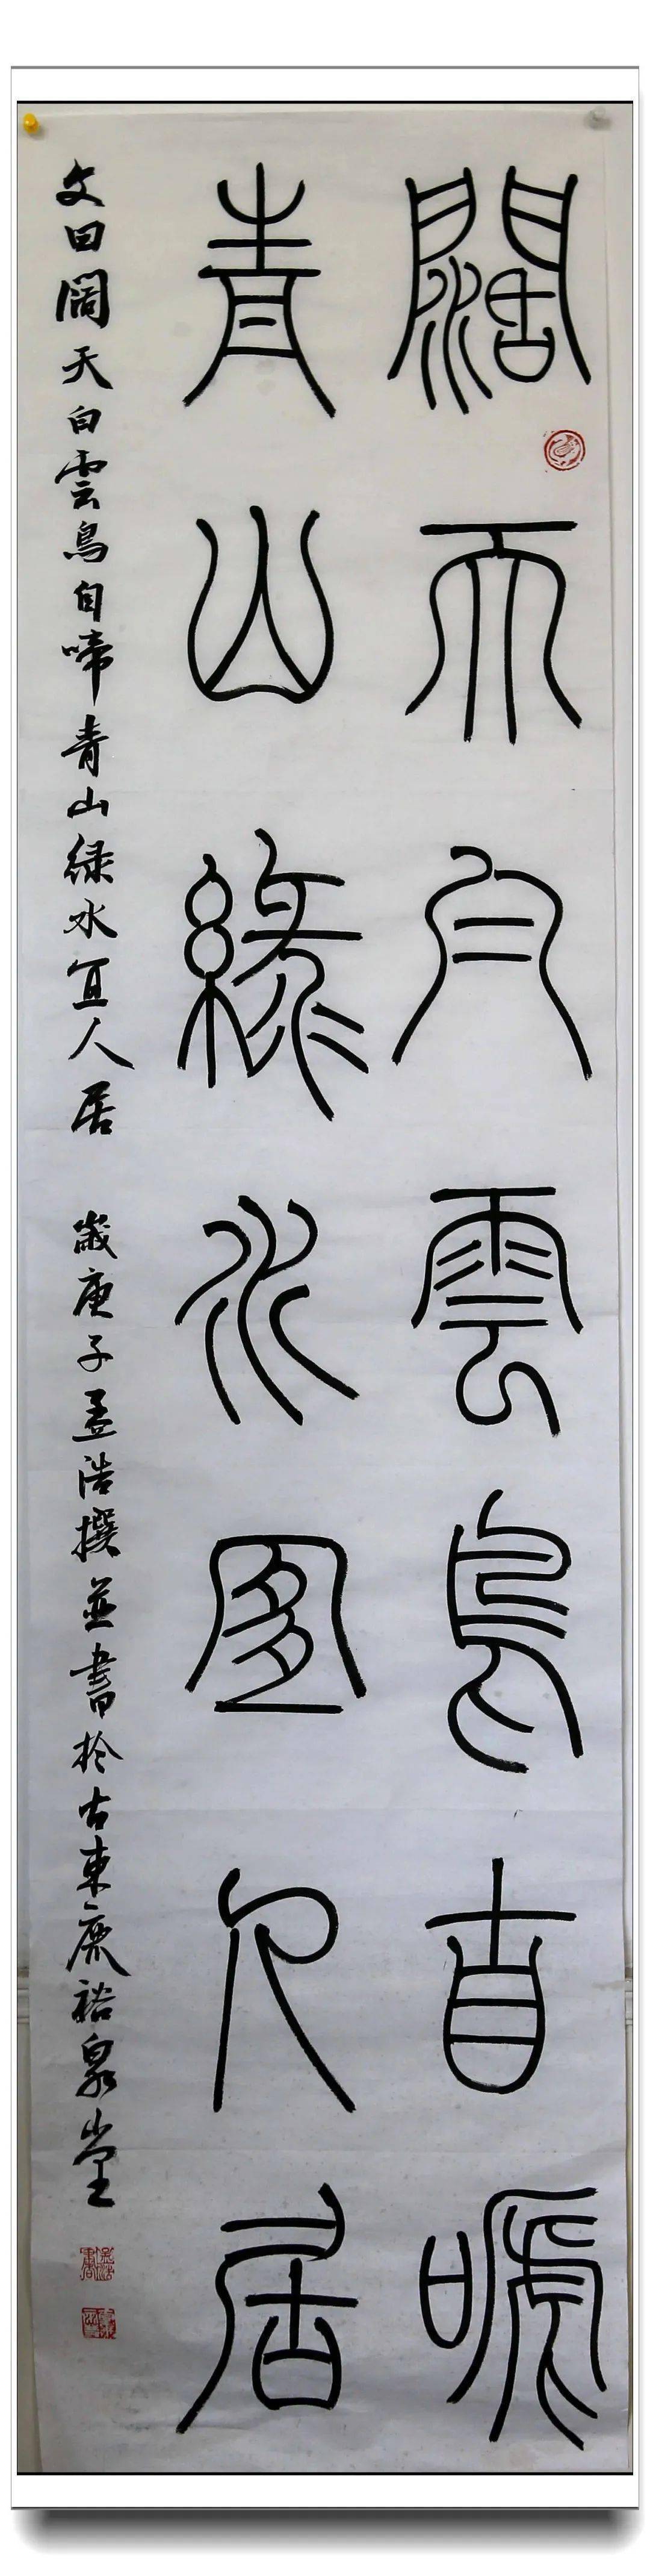 闊天白雲鳥自嗁
青山綠水宜人居
文曰闊天白雲鳥自啼青山緑水宜人居 歲庚子孟浩撰並書於古東鹿裕泉堂